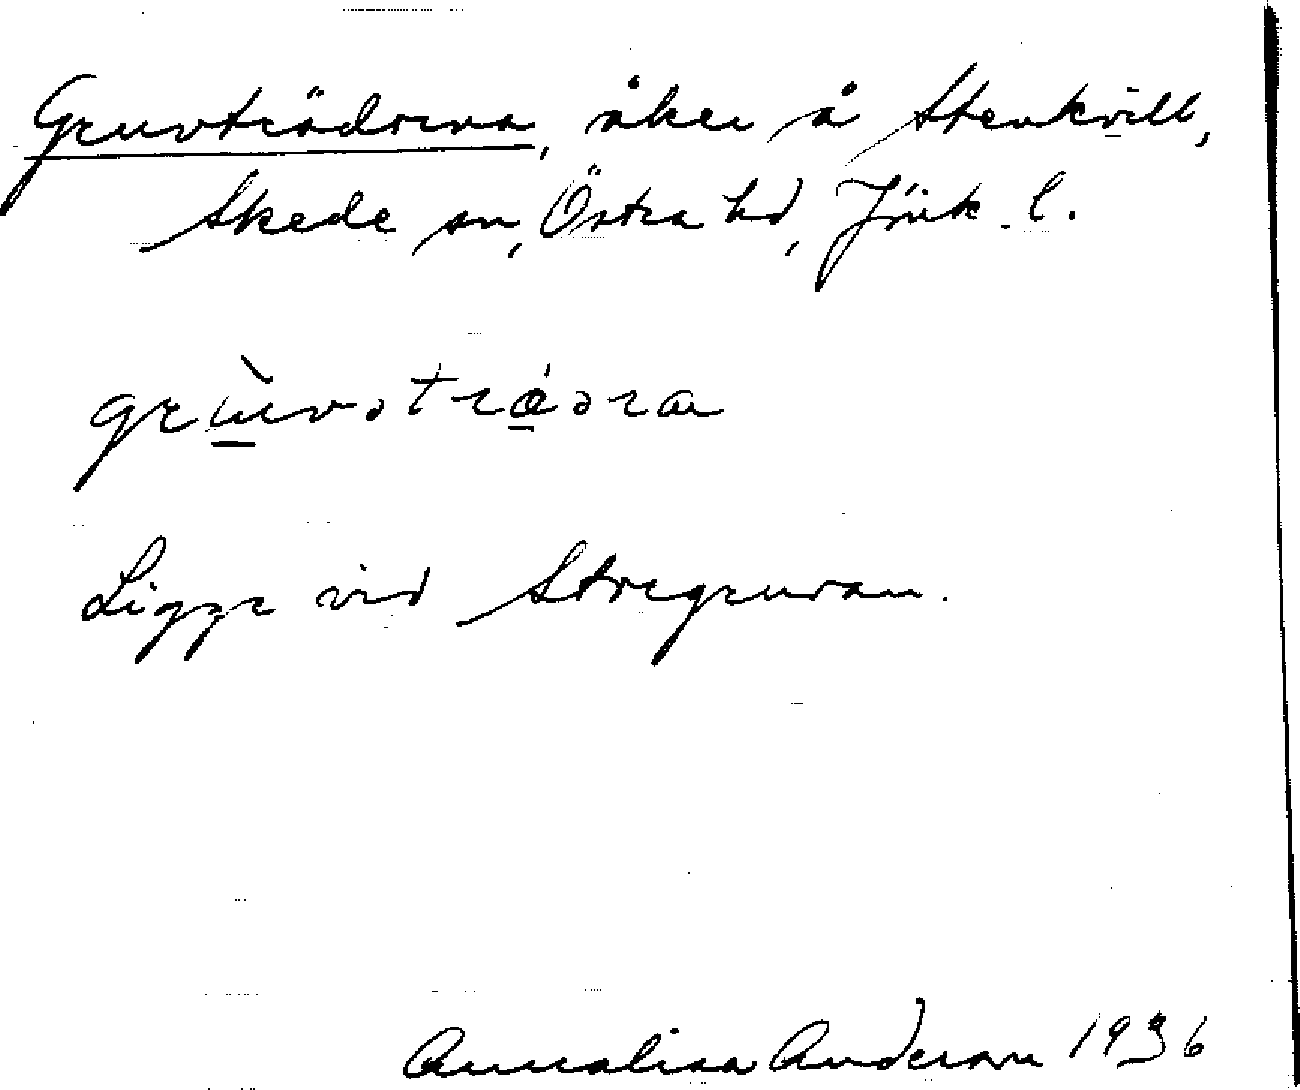 Gruvträdorna, åker å Stenkvill,
Skede sn, Östra hd, Jönk. l.
Ligger vid Storgruvan.
Annalisa Anderson 1936